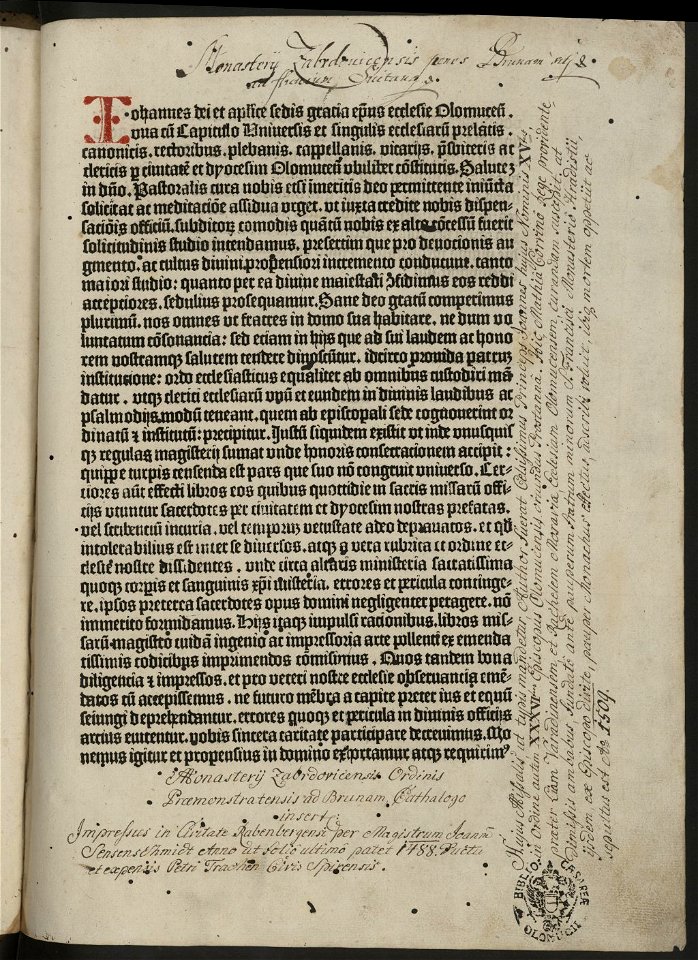 Monasterij Zabrdovicensis penes Brunam
Johannes dei et aplice sedis gratia epūs ecclesie Olomuceñ.
vna cū Capitulo Vniuersis et singulis ecclesiarū prelatis.
canonicis. rectoribus. plebanis. cappellanis. vicarijs. p̄sbiteris ac
clericis ꝑ ciuitatē et dyocesim Olomuceñ vbilibet cōstitutis. Salutez
in dn̄o. Pastoralis cura nobis etsi imeritis deo permittente iniūcta
solicitat ac meditatiōe assidua vrget. vt iuxta credite nobis dispen-
sacōis officiū. subditoꝝ comodis quātū nobis ex alto cōcessū fuerit
solicitudinis studio intendamus. presertim que pro deuotionis au
gmento. ac cultus diuini. propensiori incremento conducunt. tanto
maiori studio: quanto per ea diuine maiestati cōfidimus eos reddi
acceptiores. sedulius prosequamur. Sane deo gratū competimus
plurimū. nos omnes vt fratres in domo sua habitare. ne dum vo
luntatum cōsonancia: sed eciam in hijs que ad sui laudem ac hono
rem nostramqꝫ salutem tendere dinoscūtur. idcirco prouida patrum
institucione: ordo ecclesiasticus equaliter ab omnibus custodiri mā
datur. vtqꝫ clerici ecclesiarū vnū et eundem in diuinis laudibus ac
psalmodijs. modū teneant. quem ab episcopali sede cognouerint or
dinatū & institutū: precipitur. Justū siquidem existit vt inde vnusquis
qꝫ regulas magisterij sumat vnde honoris consecracionem accipit:
quippe turpis censenda est pars que suo nō congruit vniuerso. Cer-
tiores aūt effecti libros eos quibus quottidie in sacris missarū offi-
cijs vtuntur sacerdotes per ciuitatem et dyocesim nostras prefatas.
vel scribentiū incuria. vel temporum vetustate adeo deprauatos. et qd
intolerabilius est inter se diuersos. atqꝫ a vera rubrica et ordine ec-
clesie nostre dissidentes. vnde circa altaris ministeria sacratissima
quoqꝫ corpis et sanguinis xp̄i misteria. errores et pericula continge-
re. ipsos preterea sacerdotes opus domini negligenter peragere. nō
immerito formidamus. Hijs itaqꝫ impulsi racionibus. libros mis-
sarū. magistro cuidā ingenio ac impressoria arte pollenti ex emenda
tissimis codicibus imprimendos cōmisimus. Quos tandem bona
diligencia & impressos. et pro veteri nostre ecclesie obseruancia emē-
datos cū accepissemus. ne futuro mēbra a capite preter ius et equū
seiungi deprehendantur. errores quoqꝫ et pericula in diuinis officijs
arcius euitentur. vobis sincera caritate participare decreuimus. Mo
nemus igitur et propensius in domino exhortamur atqꝫ requirim⁹
Monasterij Zabrdovicensis Ordinis
Præmonstratensis ad Brunam Cathalogo
insert
Impressus in Civitate Babenbergensi per Magistrum Joann̄
Sensenschmidt Anno ut folio ultimo patet 1488. Ductu
et expensis Petri Trachen Civis Spirensis.
Hujus Missalis, ut typis mandetur, Author fuerat Celsissimus Princeps Joannes hujus Nominis XV.
in Ordine autem XXXVI. Episcopus Olomucensis, oriundus Posthania. Hic Mathia Corvino Rege providente,
præter Varadinensem, et Rathezem Moraviæ Ecclesiam Olomucensem, curandam suscepit, at
Dimissis ambabus, fundato ante pauperum fratrum minorum S. Francisci Monasterio Hradistij,
ijdem ex Episcopo divite, pauper Monachus effectus, ibiq mortem oppetijt ac
sepultus est A⁰ 1509.
BIBLIO. CÆSAREÆ
OLOMUCII